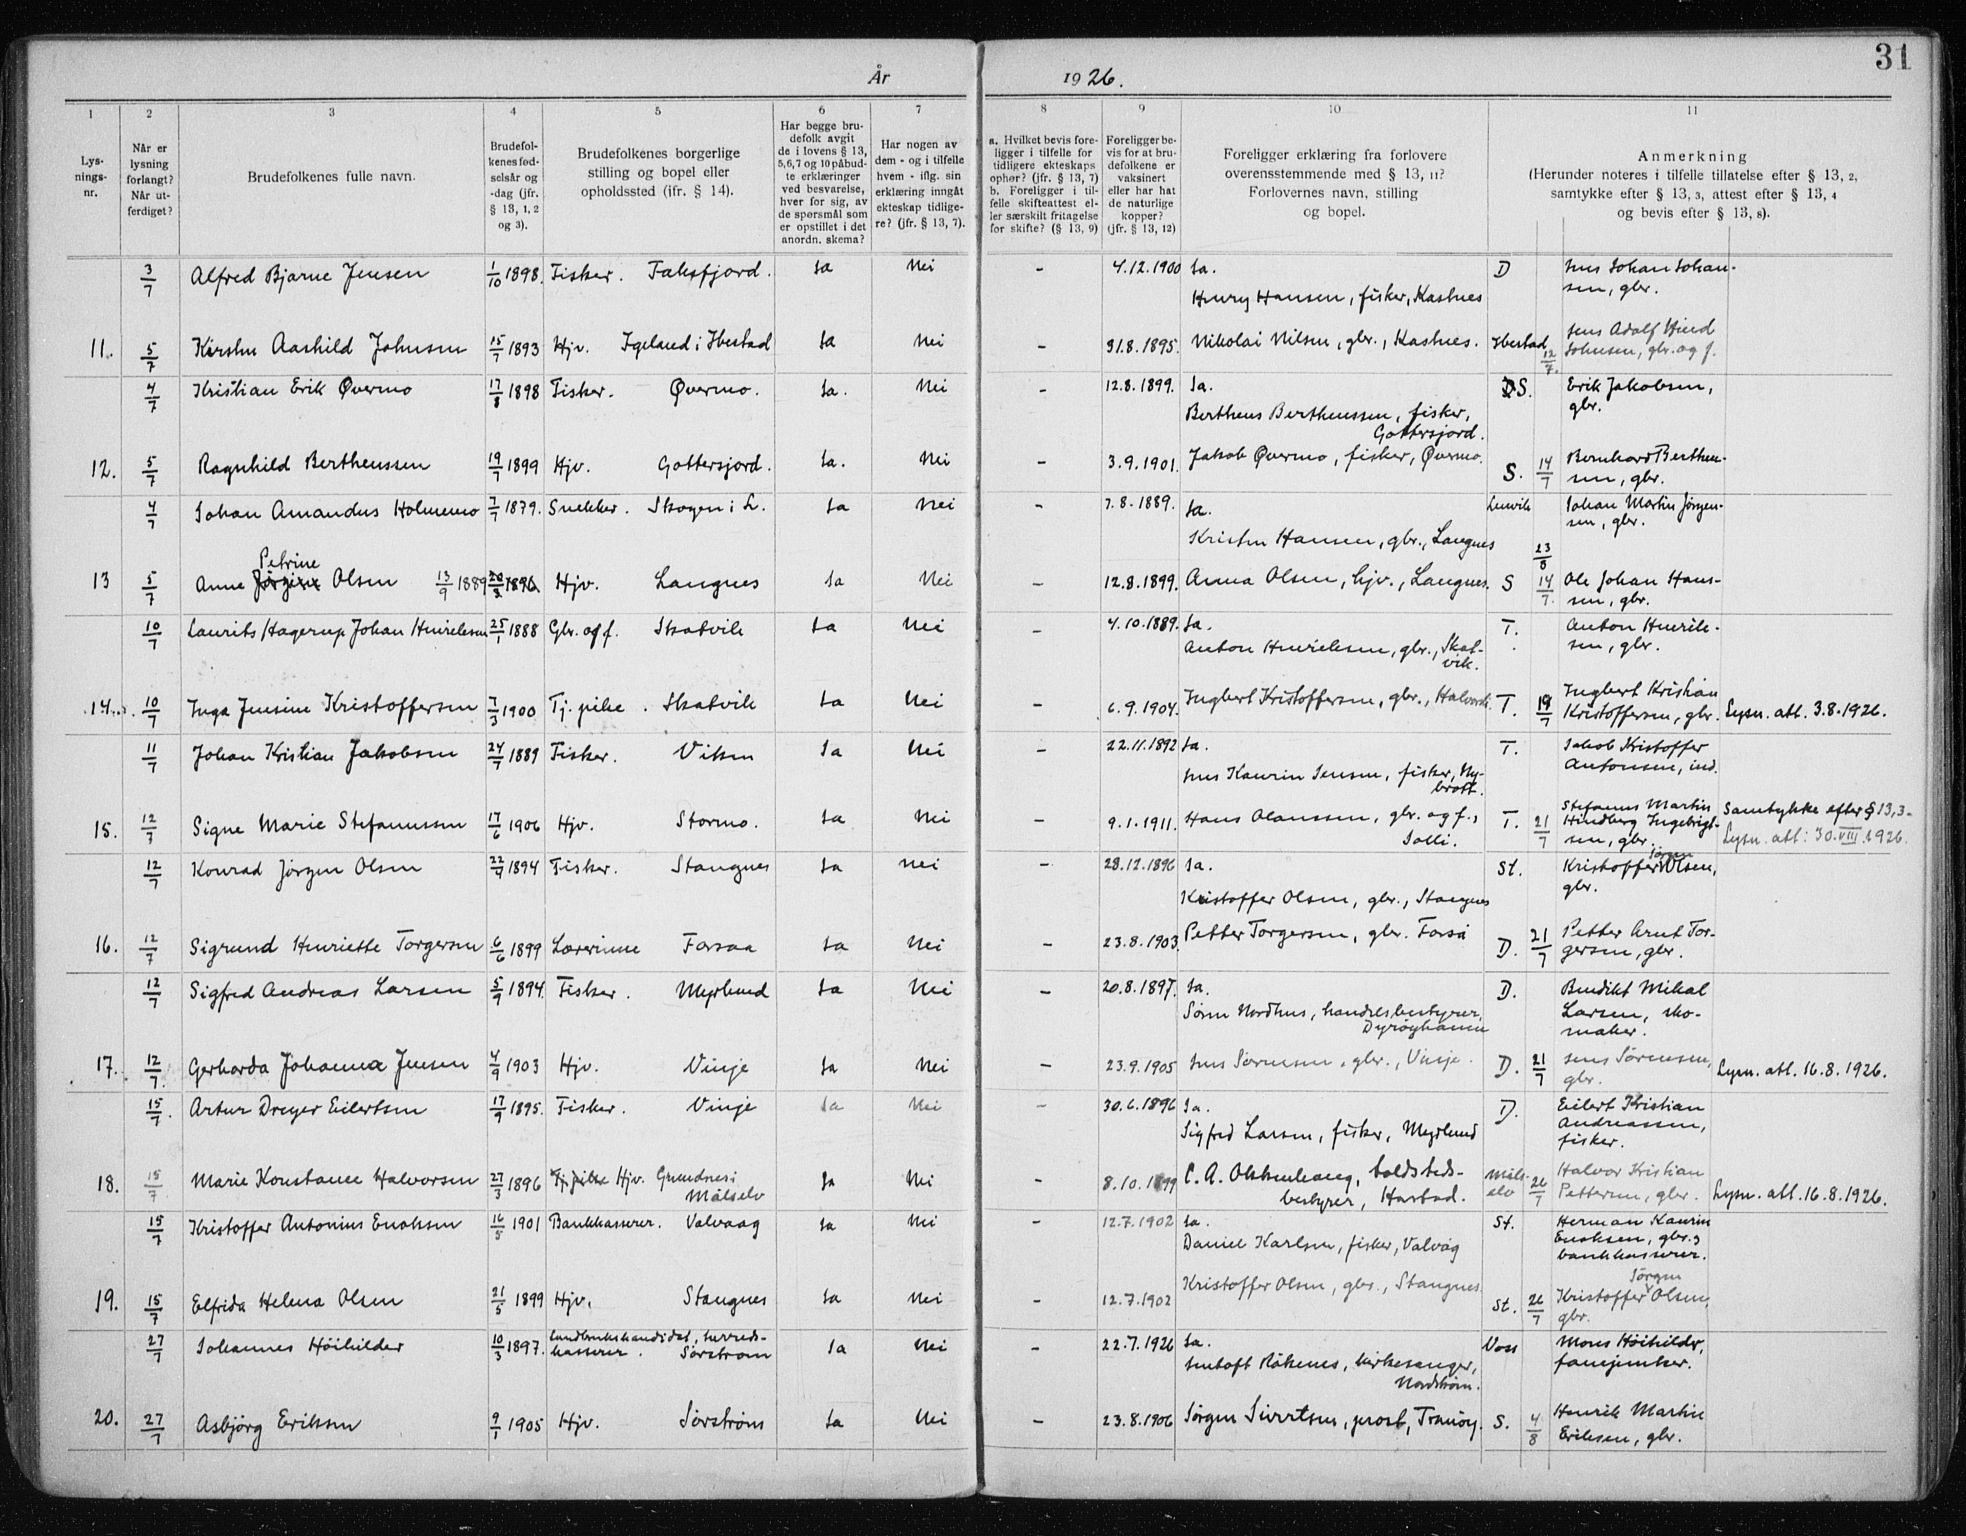 31
År 1926.
1 2 3 4 5 6 7 8 9 10 11
Lys-
nings-
nr.
Når er
lysning
forlangt?
Når ut-
ferdiget?
Brudefolkenes fulle navn.
Brudefol-
kenes fød-
selsår og
-dag (jfr.
§ 13, 1, 2
og 3).
Brudefolkenes borgerlige
stilling og bopel eller
opholdssted (ifr. § 14).
Har begge bru-
defolk avgit
de i lovens § 13,
5,6,7 og 10 påbud-
te erklæringer
ved besvarelse,
hver for sig, av
de spørsmål som
er opstillet i det
anordn. skema?
Har nogen av
dem - og i tilfelle
hvem - iflg. sin
erklæring inngått
ekteskap tidlige-
re? (jfr. § 13, 7).
a. Hvilket bevis fore-
ligger i tilfelle for
tidligere ekteskaps
ophør? (jfr. § 13, 7)
b. Foreligger i til-
felle skifteattest el-
ler særskilt fritagelse
for skifte? (§ 13, 9)
Foreligger be-
vis for at bru-
defolkene er
vaksinert
eller har hat
de naturlige
kopper?
(jfr. § 13, 12)
Foreligger erklæring fra forlovere
overensstemmende med § 13, 11?
Forlovernes navn, stilling
og bopel.
Anmerkning
(Herunder noteres i tilfelle tillatelse efter § 13, 2,
samtykke efter § 13, 3, attest efter § 13, 4
og bevis efter § 13, 8).
3/7 Alfred Bjarne Jensen 1/10 1898. Fisker. Faksfjord. Ja Nei - 4.12.1900 Ja. D Jens Johan Johan-
Henry Hansen, fisker, Kastnes sen, gbr.
11. 5/7 Kirsten Aashild Johnsen 15/7 1893 Hjv. Igeland i Ibestad Ja Nei - 31.8.1895. Nikolai Nilsen, gbr., Kastnes. Ibestad 12/7. Jens Adolf Hind
Johnsen, gbr. og f.
4/7 Kristian Erik Øvermo 17/8 1898 Fisker. Øvermo. Ja. Nei - 12.8.1899. Ja. S. Erik Jakobsen,
gbr.
Bertheus Bertheussen, fisker,
Gottersjord.
12. 5/7 Ragnhild Bertheussen 19/7 1899 Hjv. Gottersjord. Ja. Nei - 3.9.1901. Jakob Øvermo, fisker, Øvermo. S. 14/7 Bernhard Bertheu-
sen, gbr.
4/7 Johan Amandus Holmemo 7/7 1879. Snekker. Skogen i L. Ja Nei - 7.8.1889. Ja. Lenvik Johan Martin Jørgen-
sen, gbr.
Kristen Hansen, gbr., Langnes 23/8
Petrine
13 5/7 Anne Jørgine Olsen 13/9 1889 20/2 1896 Hjv. Langnes Ja Nei - 12.8.1899. Anna Olsen, hjv., Langnes. S 14/7. Ole Johan Hans-
sen, gbr.
10/7 Laurits Hagerup Johan Henriksen 25/1 1888 Gbr. og f. Skatvik Ja Nei - 4.10.1889. Ja. T. Anton Henrik-
sen, gbr.
Anton Henriksen, gbr., Skat-
vik.
14. 10/7 Inga Jensine Kristoffersen 7/3 1900 Tj. pike. Skatvik Ja Nei - 6.9.1904. Ingbert Kristoffersen, gbr., T. 19/7 Ingbert Kristian
Kristoffersen, gbr. Lysn. att. 3.8.1926.
11/7 Johan Kristian Jakobsen 24/7 1889 Fisker. Viken Ja Nei - 22.11.1892 Ja. T. Jakob Kristoffer
Antonsen, ind.
Jens Kaurin Jensen, fisker, Ny-
brott.
15. 12/7 Signe Marie Stefanussen 17/6 1906 Hjv. Stormo. Ja Nei - 9.1.1911. Hans Olaussen, gbr. og f., T. 21/7 Stefanus Martin
Solli. Hindberg Ingebrigt-
sen, gbr. Samtykke efter § 13,3-
Lysn. att: 30.VIII.1926.
12/7 Konrad Jørgen Olsen 22/7 1894 Fisker. Stangnes Ja Nei - 28.12.1896 Ja. St. Kristoffer Jørgen Olsen,
gbr.
Kristoffer Olsen, gbr., Stangnes
16. 12/7 Sigrund Henriette Torgersen 6/6 1899 Lærerinne Forsaa Ja Nei - 23.8.1903. Petter Torgersen, gbr. Forså D. 21/7 Petter Arnt Tor-
gersen, gbr.
12/7 Sigfred Andreas Larsen 5/9 1894. Fisker. Myrlund Ja Nei - 20.8.1897. Ja. D. Benedikt Mikal
Larsen, sko-
maker.
Søren Nordhus, handelsbestyrer,
Dyrøyhamn
17. 12/7. Gerharda Johanna Jensen 4/9 1903 Hjv. Vinje Ja Nei - 23.9.1905 Jens Sørensen, gbr., Vinje. D. 21/7 Jens Sørensen,
gbr. Lysn. att. 16.8.1926.
15/7. Artur Dreyer Eilertsen 17/7 1895. Fisker. Vinje Ja Nei - 30.6.1896 Ja. D. Eilert Kristian
Andreassen,
fisker.
Sigfred Larsen, fisker, Myrlund
18. 15/7 Marie Konstance Halvorsen 27/3 1896 Tj.pike Hjv. Grundnes i
Målselv Ja Nei - 8.10.1899 C. A. Okkenhaug, toldsteds-
bestyrer, Harstad. Måls-
elv 26/7 Halvor Kristian
Pettersen, gbr. Lysn. att. 16.8.1926.
15/7 Kristoffer Antonius Enoksen 16/5 1901 Bankkasserer. Valvaag Ja Nei - 12.7.1902 Ja. St. Herman Kaurin
Enoksen, gbr. og
bankkasserer.
Daniel Karlsen, fisker, Valvåg
19. 15/7 Elfrida Helena Olsen 21/5 1899 Hjv. Stangnes Ja Nei - 12.7.1902 Kristoffer Olsen, gbr., Stangnes St. 26/7 Kristoffer Jørgen Olsen,
gbr.
27/7 Johannes Höihilder 10/3 1897. Landbrukskandidat, herreds-
kasserer. Sørstrøm Ja Nei - 22.7.1926 Ja. Voss Mons Höihilder,
fanejunker.
Jentoft Råkenes, kirkesanger,
Nordstrøm.
20. 27/7 Asbjørg Eriksen 9/1 1905 Hjv. Sørstrøm Ja Nei - 23.8.1906 Jørgen Sivertsen, prost, Tranøy. S. 4/8 Henrik Martin
Eriksen, gbr.